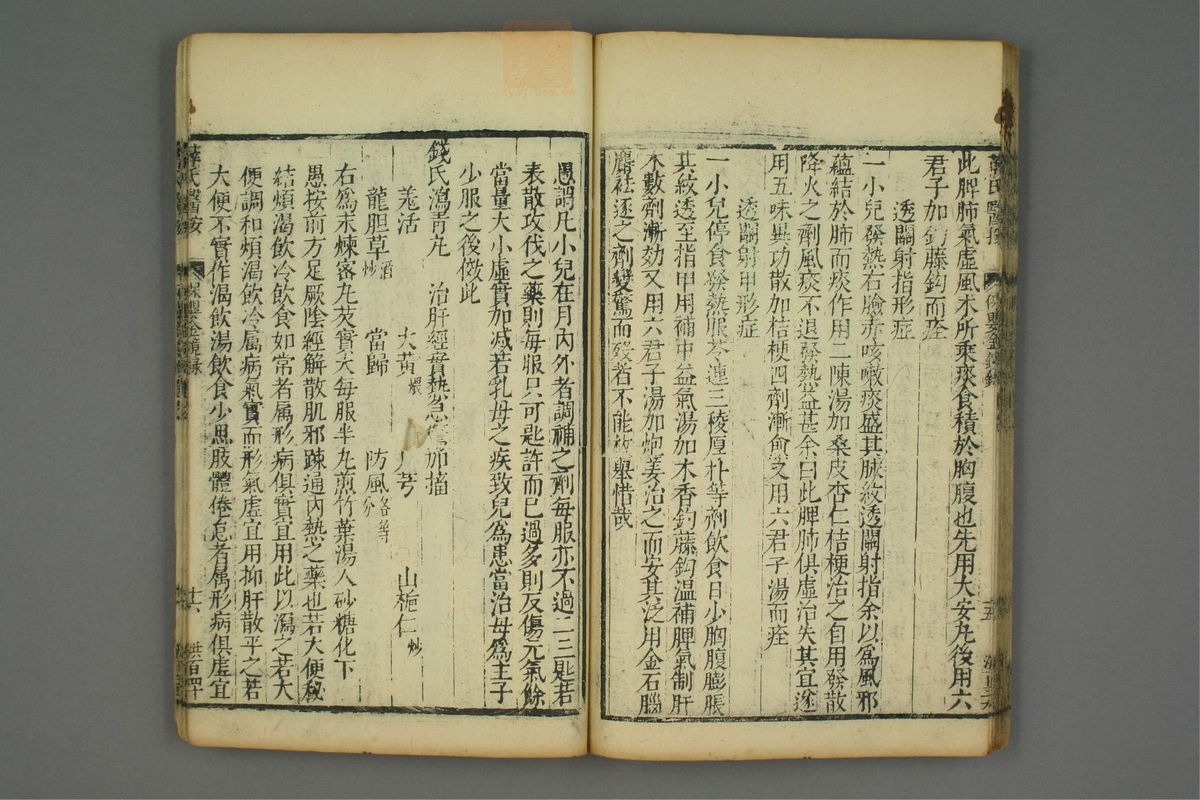 此脾肺氣虛風木所乘痰食積於胸腹也先用大安丸後用六
君子加鉤藤鈎而痊
透關射指形症
一小兒發熱右臉赤咳嗽痰盛其脉紋透關射指余以為風邪
蘊結於肺而痰作用二陳湯加桑皮杏仁桔梗治之自用發散
降火之劑風痰不退發熱益甚余曰此脾肺俱虛治失其宜遂
用五味異功散加桔梗四劑漸愈又用六君子湯而痊
透關射甲形症
一小兒停食發熱服芩連三稜厚朴等劑飲食日少胸腹膨脹
其紋透至指甲用補中益氣湯加木香鈎藤鈎溫補脾氣制肝
木數劑漸効又用六君子湯加炮姜治之而安其泛用金石腦
麝祛逐之劑變驚而殁者不能枚舉惜哉
愚謂凡小兒在月內外者調補之劑每服亦不過二三匙若
表散攻伐之藥則每服只可匙許而已過多則反傷元氣餘
當量大小虛實加减若乳母之疾致兒為患當治母為主子
少服之後倣此
錢氏瀉青丸 治肝經實熱急驚加搐
羌活 大黃煨 芎 山梔仁炒
龍胆草酒炒 當歸 防風各等分
右為末煉蜜丸芡實大每服半丸煎竹葉湯入砂糖化下
愚按前方足厥陰經解散肌邪踈通內熱之藥也若大便秘
結煩渴飲冷飲食如常者属形病俱實宜用此以瀉之若大
便調和煩渴飲冷属病氣實而形氣虛宜用抑肝散平之若
大便不實作渴飲湯飲食少思肢體倦怠者属形病俱虛宜
薛氏醫按 保嬰金鏡錄 十六 洪百四十